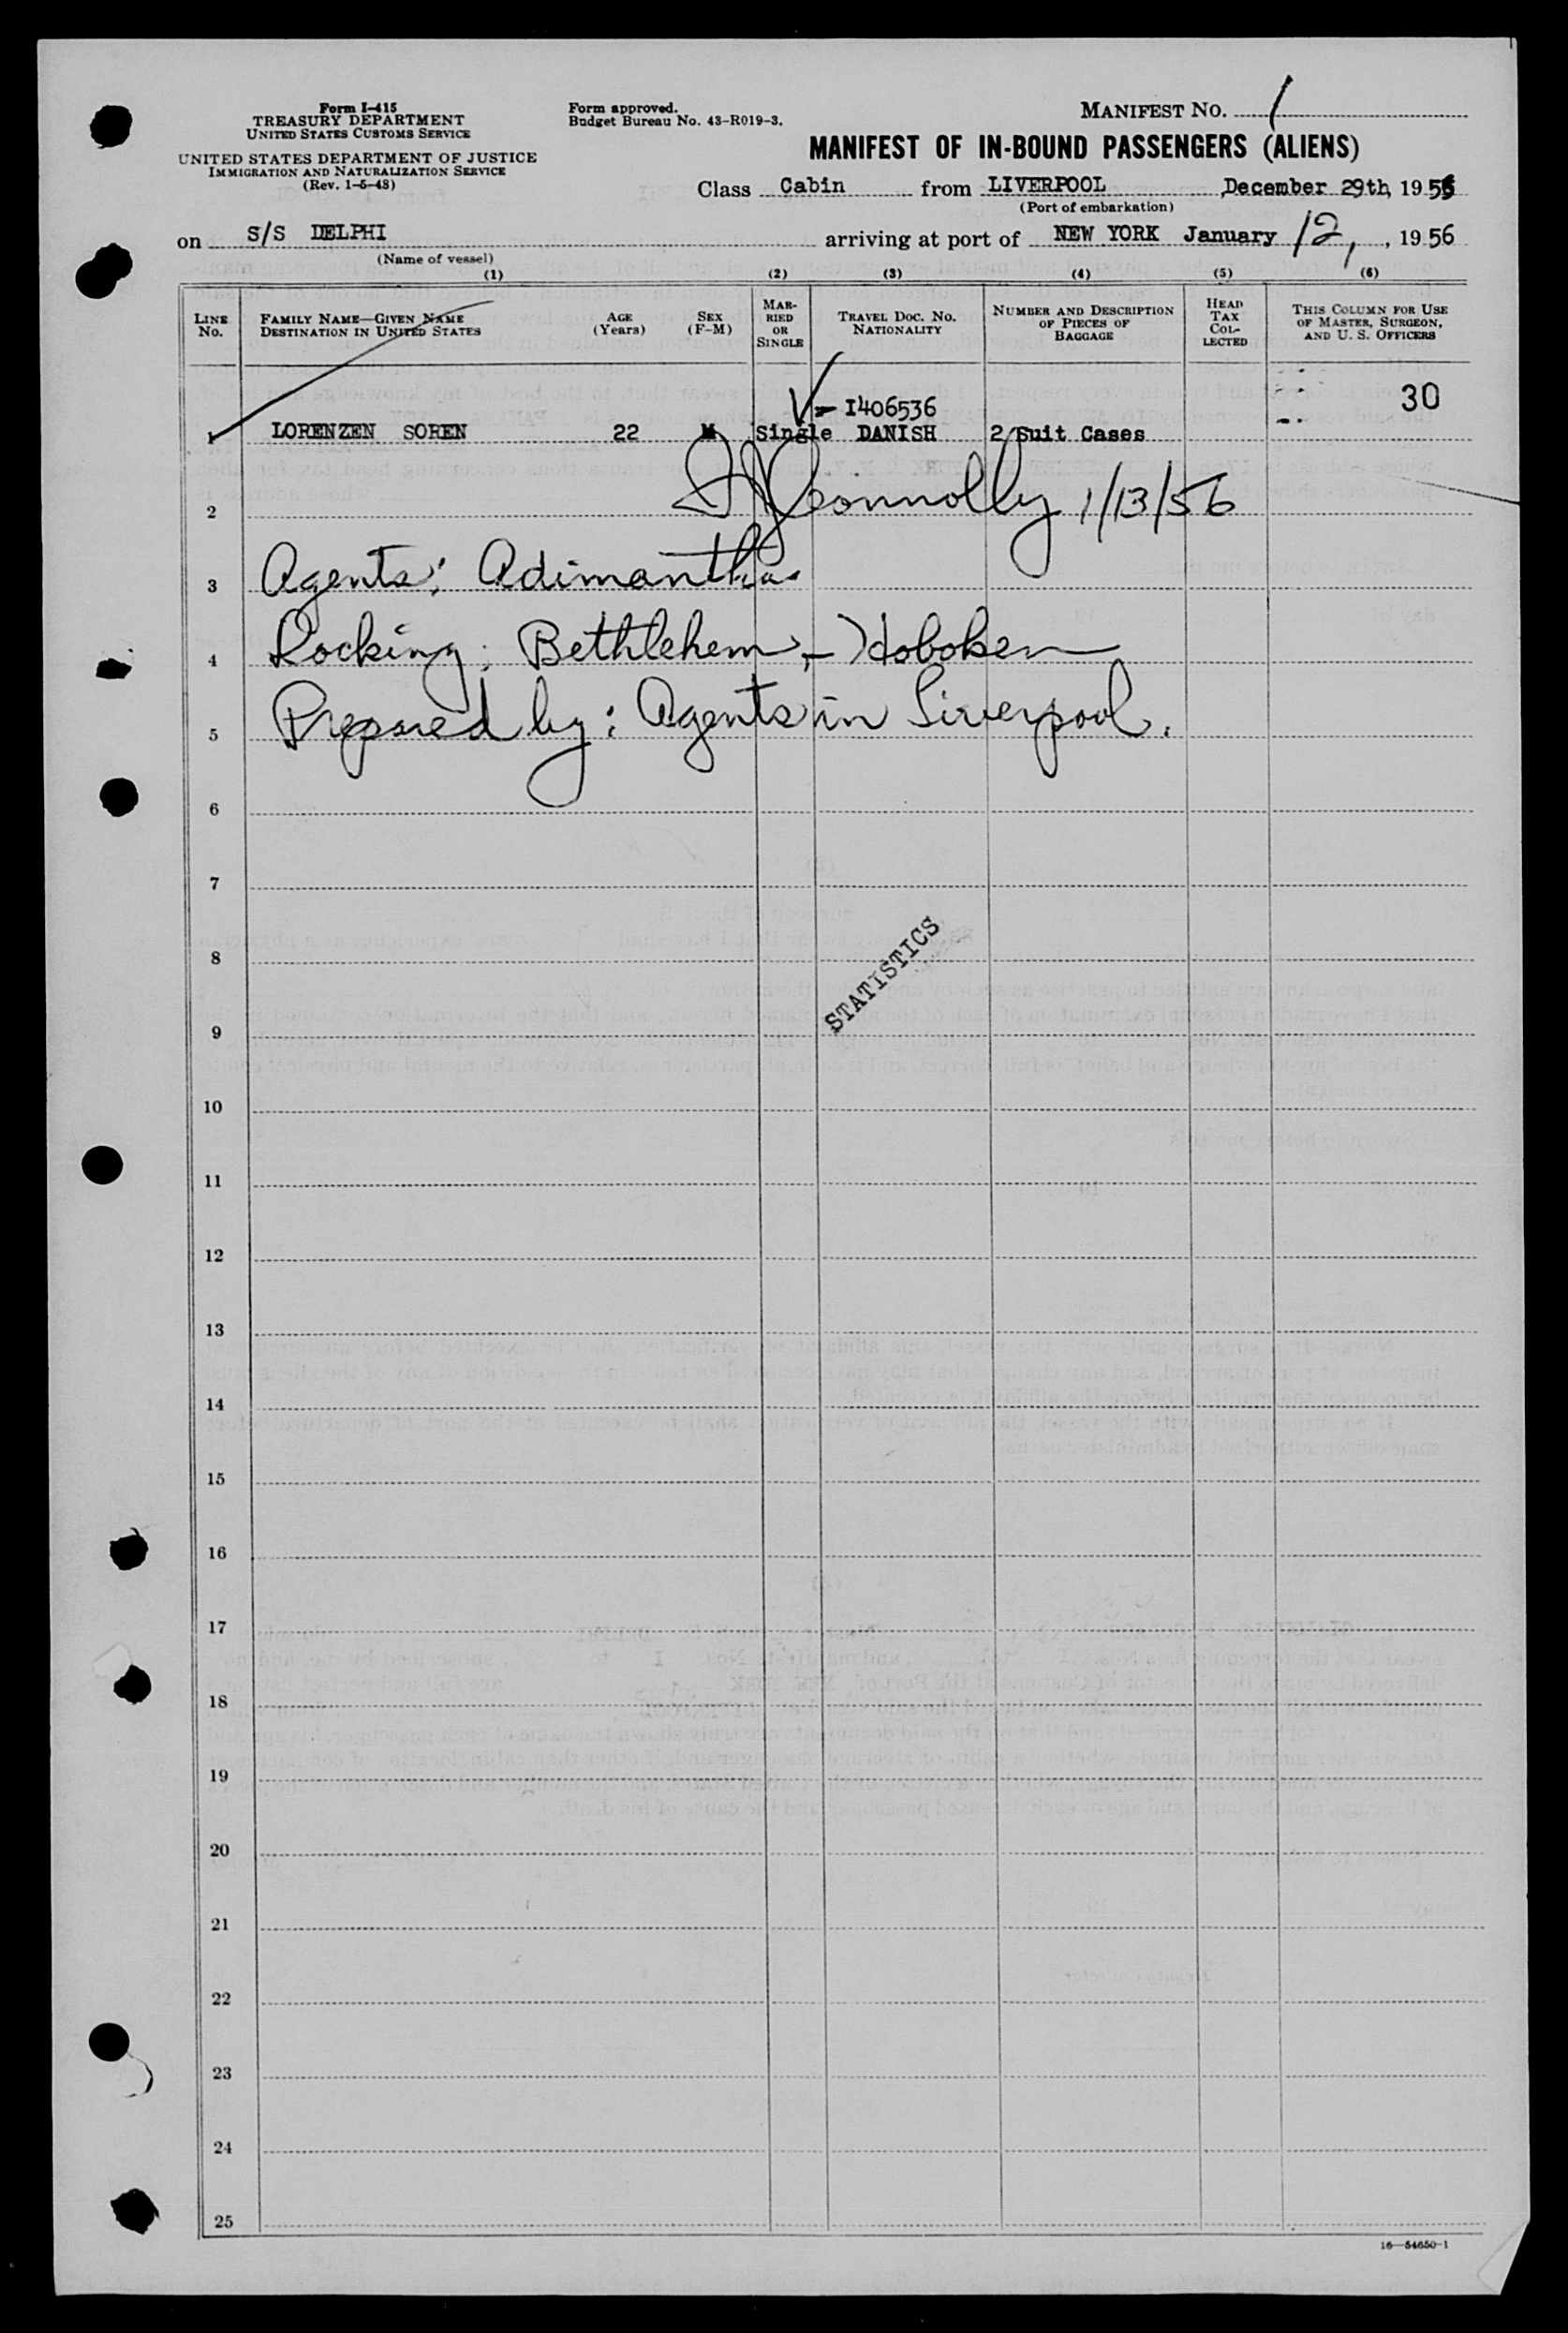 Form I-415
TREASURY DEPARTMENT
UNITED STATES CUSTOMS SERVICE
UNITED STATES DEPARTMENT OF JUSTICE
IMMIGRATION AND NATURALIZATION SERVICE
(Rev. 1-5-48)
Form approved.
Budget Bureau No. 43-R019-3.
MANIFEST NO. 1
MANIFEST OF IN-BOUND PASSENGERS (ALIENS)
Class Cabin from LIVERPOOL, December 29th, 1955
(Port of embarkation)
on S/S DELPHI arriving at port of NEW YORK January 12, 1956
(Name of vessel)
(1) (2) (3) (4) (5) (6)
LINE No. FAMILY NAME—GIVEN NAME DESTINATION IN UNITED STATES AGE (Years) SEX (F-M) MARRIED OR SINGLE TRAVEL DOC. NO. NATIONALITY NUMBER AND DESCRIPTION OF PIECES OF BAGGAGE HEAD TAX COLLECTED THIS COLUMN FOR USE OF MASTER, SURGEON, AND U. S. OFFICERS
I406536 30
1 LORENZEN SOREN 22 M Single DANISH 2 Suit Cases
2 Connolly 1/13/56
3 Agents: Adimanthas
4 Docking: Bethlehem - Hoboken
5 Prepared by: Agents in Liverpool.
6
7
8
STATISTICS
9
10
11
12
13
14
15
16
17
18
19
20
21
22
23
24
25
16—54650-1